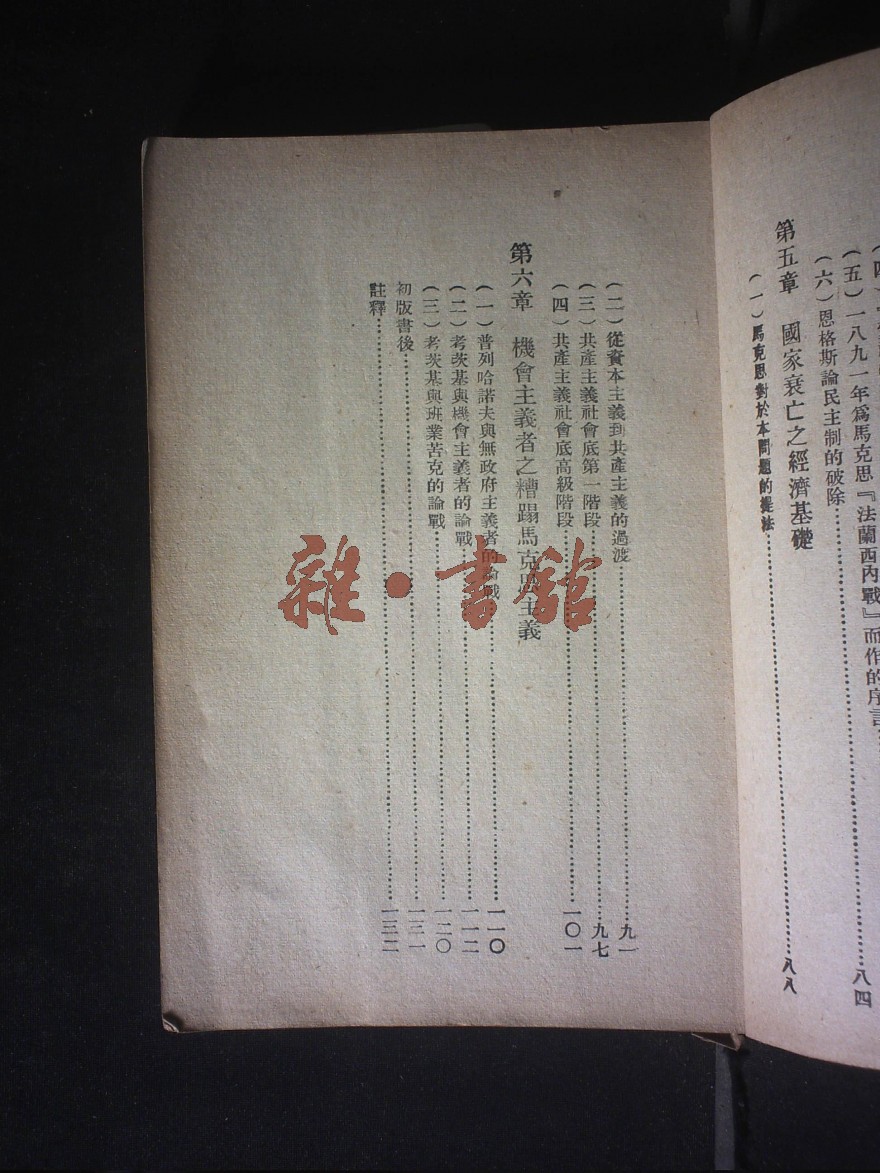 （五）一八九一年爲馬克思『法蘭西內戰』而作的序言……八四
（六）恩格斯論民主制的破除……
第五章　國家衰亡之經濟基礎
（一）馬克思對於本問題的提法……八八
（二）從資本主義到共產主義的過渡……九一
（三）共產主義社會底第一階段……九七
（四）共產主義社會底高級階段……一〇一
第六章　機會主義者之糟蹋馬克思主義
（一）普列哈諾夫與無政府主義者的論戰……一一〇
（二）考茨基與機會主義者的論戰……一一二
（三）考茨基與班業苦克的論戰……一二〇
初版書後……一三一
註釋……一三二
雜·書館